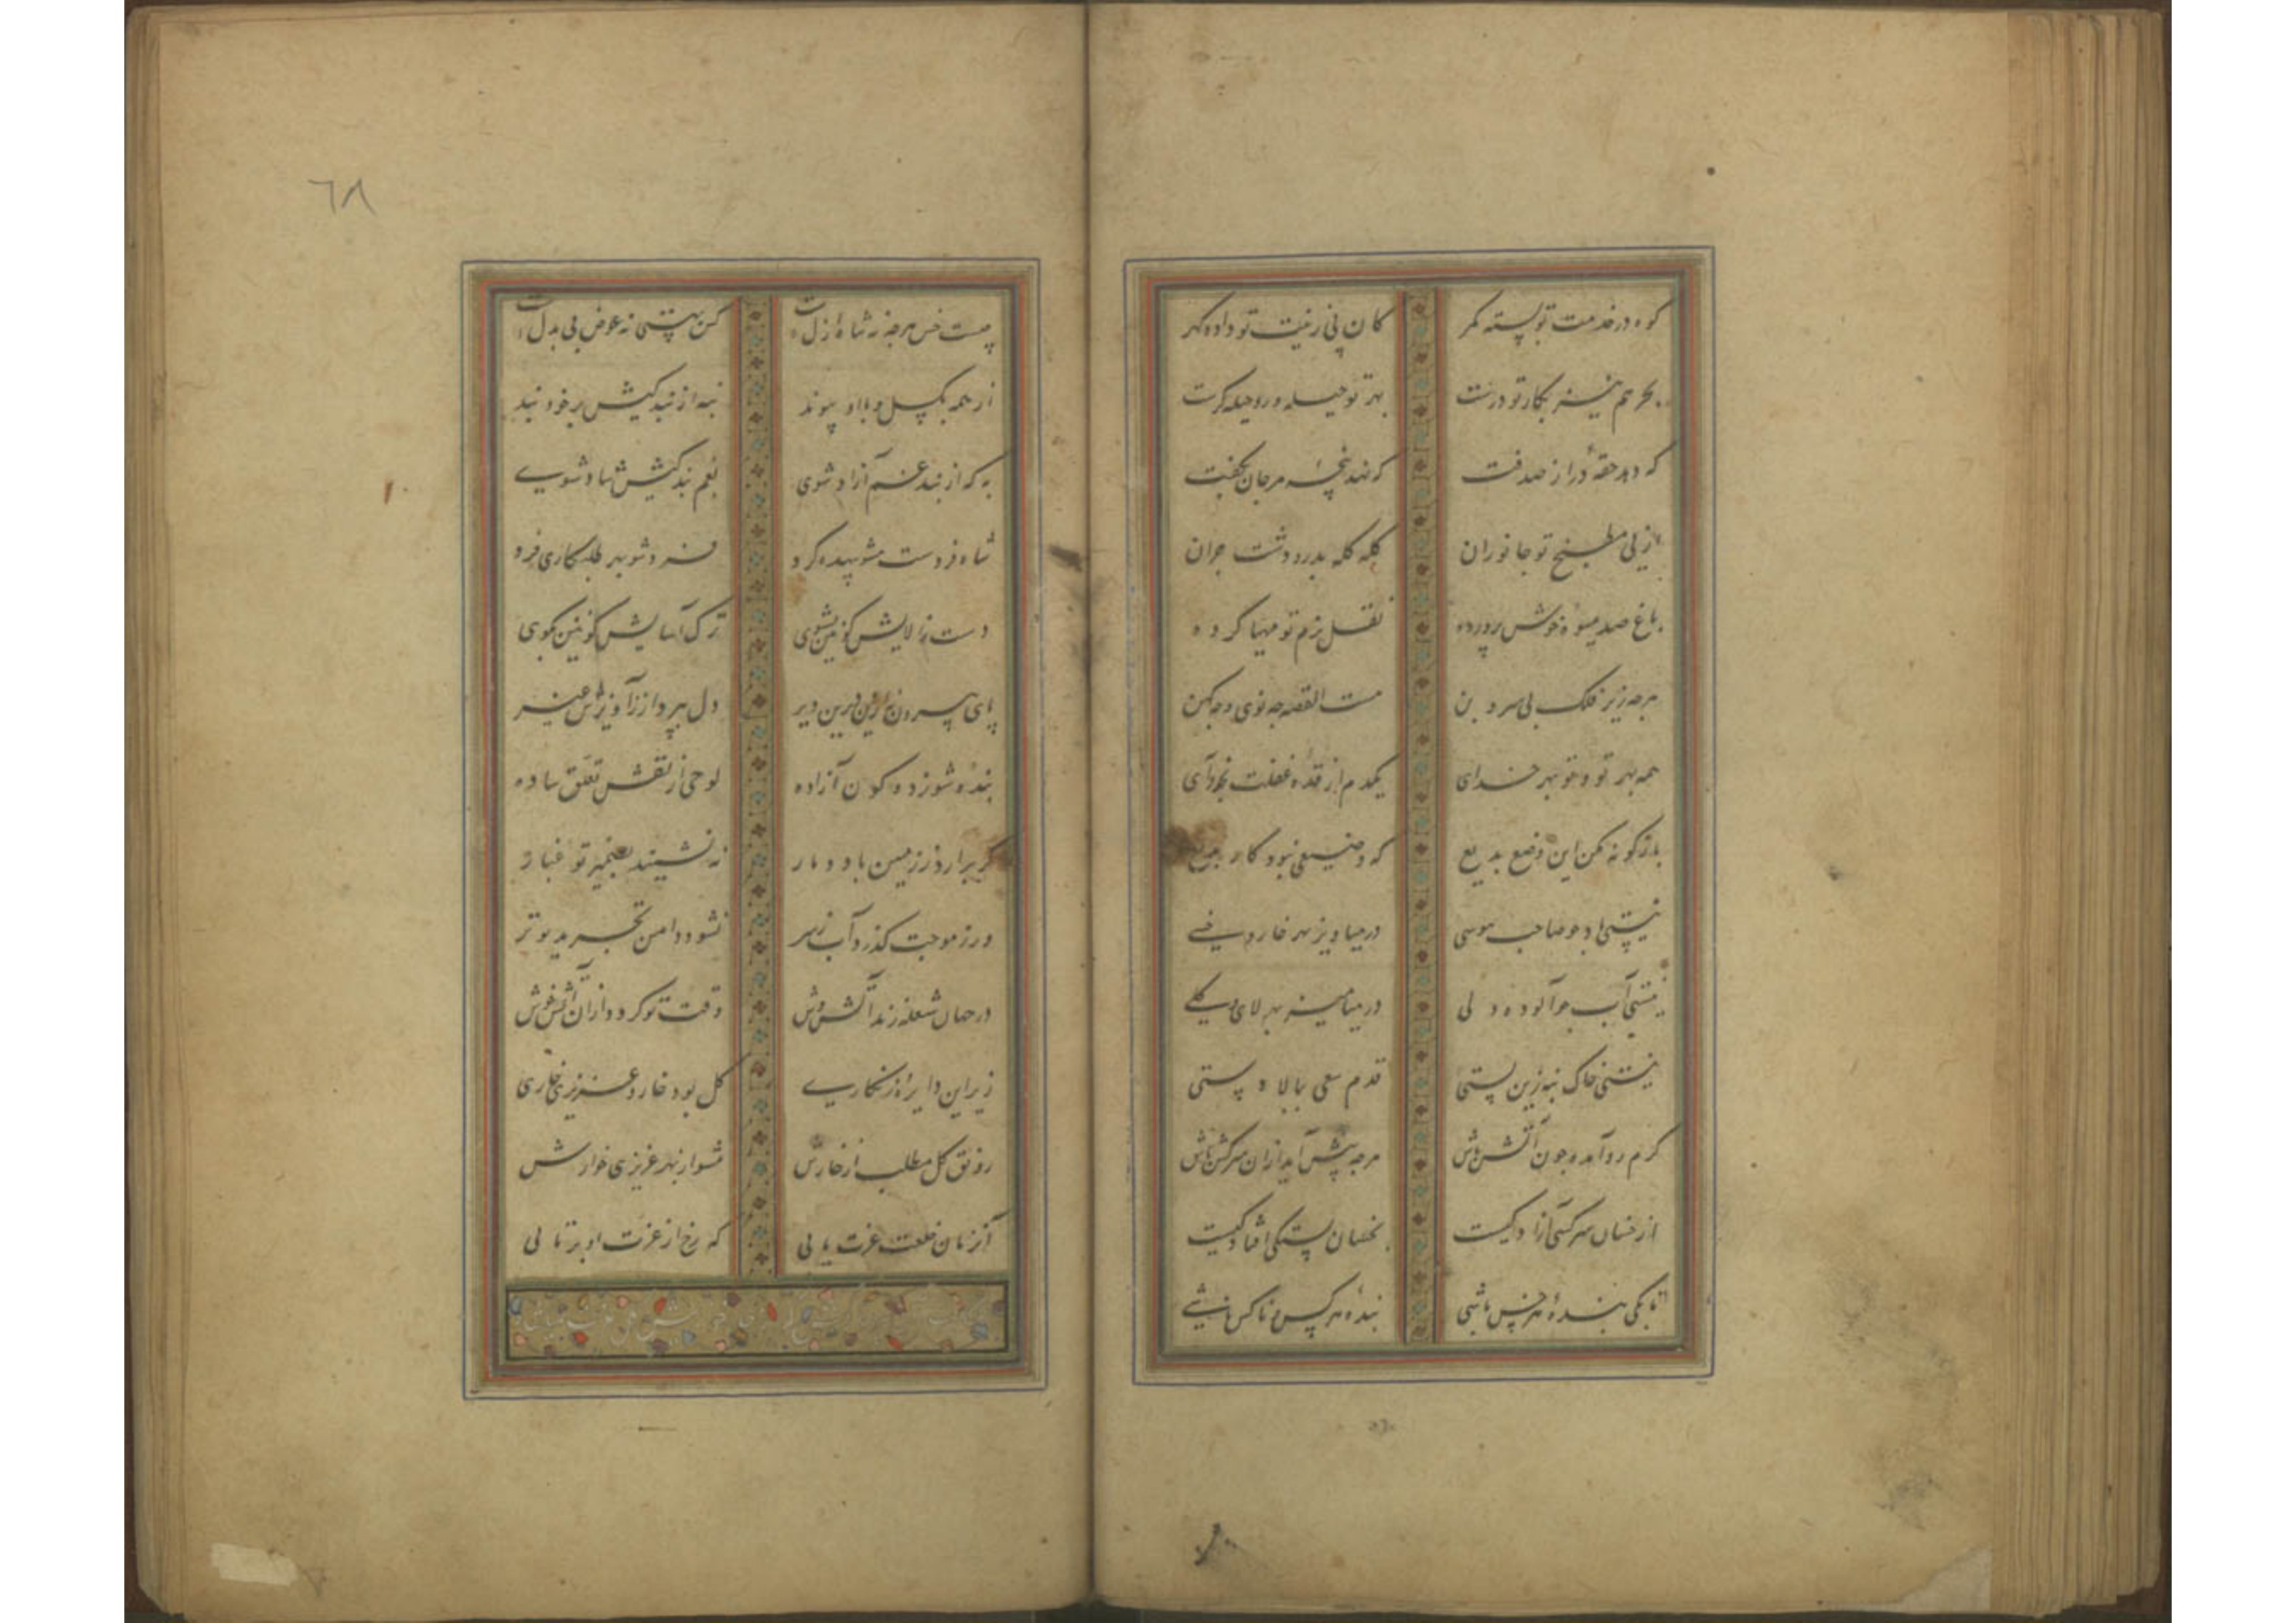 کوه در خدمت تو بسته کمر
کان پی زینت تو داده گهر
بحر هم نیز بکار تو درست
بهر تو حیله ور و حیله گرست
که دهد حقه در از صدفت
که نهد پنجه مرجان بکفت
از پی مطبخ تو جانوران
گله گله بدر و دشت چران
باغ صد میوه خوش پرورده
نقل بزم تو مهیا کرده
هرچه زیر فلک بی سر و بن
هست القصه چه نوی و چه کهن
همه بهر تو و تو بهر خدای
یکدم از قده غفلت بخود آی
بازگونه مکن این وضع بدیع
که وضیعی نبود کار رفیع
نیستی باد هوا صاحب هوسی
در میاویز بهر خار و خسی
نیستی آب هوا آلوده دلی
در میامیز بهر لای و گلی
نیستی خاک بنه زین پستی
قدم سعی ببالا دستی
گرم رو آمده چون آتش باش
هرچه پیش آید ازان سرکش باش
از خسان سرکشی آزادگیست
بخسان بستگی افتادگیست
تا بکی بنده هر خس باشی
بنده هر کس و ناکس باشی
٦٨
چیست خس هرچه نه شاه ازلست
کز پستی نه عوض بی بدلست
از همه بگسل و با او پیوند
بنه از بندگیش بر خود بند
به که از بند غم آزاد شوی
بغم بندگیش شاد شوی
شاه فردست مشو بیهده گرد
فرد شو بهر طلبکاری فرد
دست ز آلایش کونین بشوی
ترک آسایش کونین بگوی
پای بیرون نه ازین دیرین دیر
دل بپرداز ز آویزش غیر
بنده شو ز دو کون آزاده
لوحی از نقش تعلق ساده
گر برآرد ز زمین باد دمار
نه نشیند بضمیر تو غبار
ور ز موجت گذرد آب ز سر
نشود دامن تجرید تو تر
در جهان شعله زند آتش وش
وقت تو گردد ازان آتش خوش
زیر این دایره زنگاری
گل بود خار و عزیزی خاری
رونق گل مطلب از خارش
مشو از بهر عزیزی خوارش
آن زمان خلعت عزت یابی
که رخ از عزت او برتابی